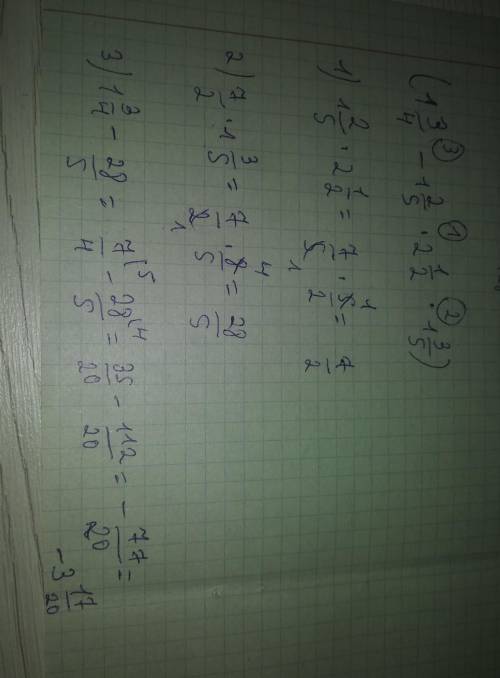 (1 3/4 ③ − 1 2/5 ① · 2 1/2 ② · 1 3/5)
1) 1 2/5 · 2 1/2 = 7/5 1 · 5 1/2 = 7/2
2) 7/2 · 1 3/5 = 7/2 1 · 8 4/5 = 28/5
3) 1 3/4 − 28/5 = 7/4 (5 − 28/5 (4 = 35/20 − 112/20 = − 77/20 =
−3 17/20